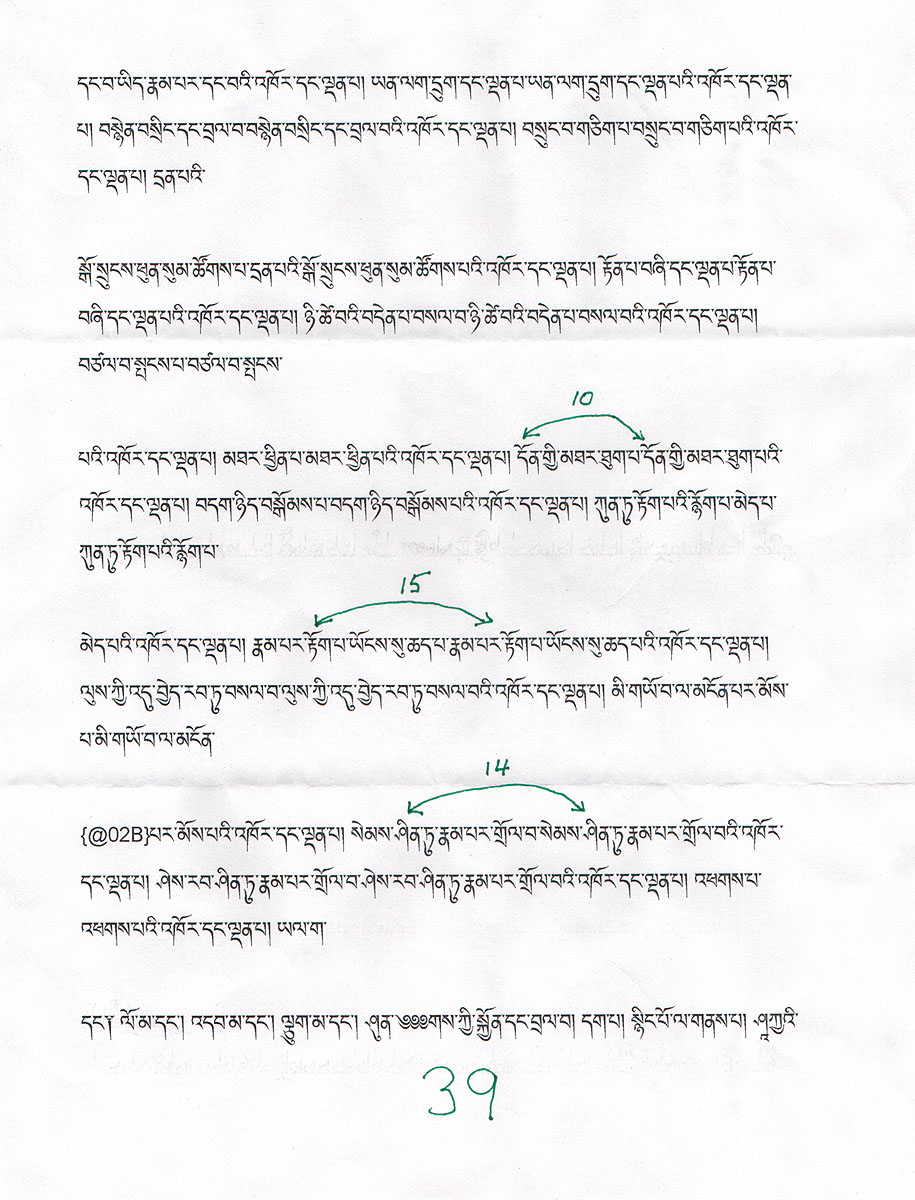 དང་བ་ཡིད་རྣམ་པར་དང་བའི་འཁོར་དང་ལྡན་པ། ཡན་ལག་དྲུག་དང་ལྡན་པ་ཡན་ལག་དྲུག་དང་ལྡན་པའི་འཁོར་དང་ལྡན་
པ། བསྙེན་བསྲིང་དང་བྲལ་བ་བསྙེན་བསྲིང་དང་བྲལ་བའི་འཁོར་དང་ལྡན་པ། བསྲུང་བ་གཅིག་པ་བསྲུང་བ་གཅིག་པའི་འཁོར་
དང་ལྡན་པ། དྲན་པའི་
སྒོ་སྲུངས་ཕུན་སུམ་ཚོགས་པ་དྲན་པའི་སྒོ་སྲུངས་ཕུན་སུམ་ཚོགས་པའི་འཁོར་དང་ལྡན་པ། རྟོན་པ་བཞི་དང་ལྡན་པ་རྟོན་པ་
བཞི་དང་ལྡན་པའི་འཁོར་དང་ལྡན་པ། ཉི་ཚེ་བའི་བདེན་པ་བསལ་བ་ཉི་ཚེ་བའི་བདེན་པ་བསལ་བའི་འཁོར་དང་ལྡན་པ།
བཙལ་བ་སྤངས་པ་བཙལ་བ་སྤངས་
10
པའི་འཁོར་དང་ལྡན་པ། མཐར་ཕྱིན་པ་མཐར་ཕྱིན་པའི་འཁོར་དང་ལྡན་པ། དོན་གྱི་མཐར་ཐུག་པ་དོན་གྱི་མཐར་ཐུག་པའི་
འཁོར་དང་ལྡན་པ། བདག་ཉིད་བསྒོམས་པ་བདག་ཉིད་བསྒོམས་པའི་འཁོར་དང་ལྡན་པ། ཀུན་ཏུ་རྟོག་པའི་རྙོག་པ་མེད་པ་
ཀུན་ཏུ་རྟོག་པའི་རྙོག་པ་
15
མེད་པའི་འཁོར་དང་ལྡན་པ། རྣམ་པར་རྟོག་པ་ཡོངས་སུ་ཆད་པ་རྣམ་པར་རྟོག་པ་ཡོངས་སུ་ཆད་པའི་འཁོར་དང་ལྡན་པ།
ལུས་ཀྱི་འདུ་བྱེད་རབ་ཏུ་བསལ་བ་ལུས་ཀྱི་འདུ་བྱེད་རབ་ཏུ་བསལ་བའི་འཁོར་དང་ལྡན་པ། མི་གཡོ་བ་ལ་མངོན་པར་མོས་
པ་མི་གཡོ་བ་ལ་མངོན་
14
{@02B}པར་མོས་པའི་འཁོར་དང་ལྡན་པ། སེམས་ཤིན་ཏུ་རྣམ་པར་གྲོལ་བ་སེམས་ཤིན་ཏུ་རྣམ་པར་གྲོལ་བའི་འཁོར་
དང་ལྡན་པ། ཤེས་རབ་ཤིན་ཏུ་རྣམ་པར་གྲོལ་བ་ཤེས་རབ་ཤིན་ཏུ་རྣམ་པར་གྲོལ་བའི་འཁོར་དང་ལྡན་པ། འཕགས་པ་
འཕགས་པའི་འཁོར་དང་ལྡན་པ། ཡལ་ག་
དང་། ལོ་མ་དང་། འདབ་མ་དང་། ལྷུག་མ་དང་། ཤུན་༧༧༧གས་ཀྱི་སྐྱོན་དང་བྲལ་བ། དག་པ། སྙིང་པོ་ལ་གནས་པ། ཤཱཀྱའི་
39